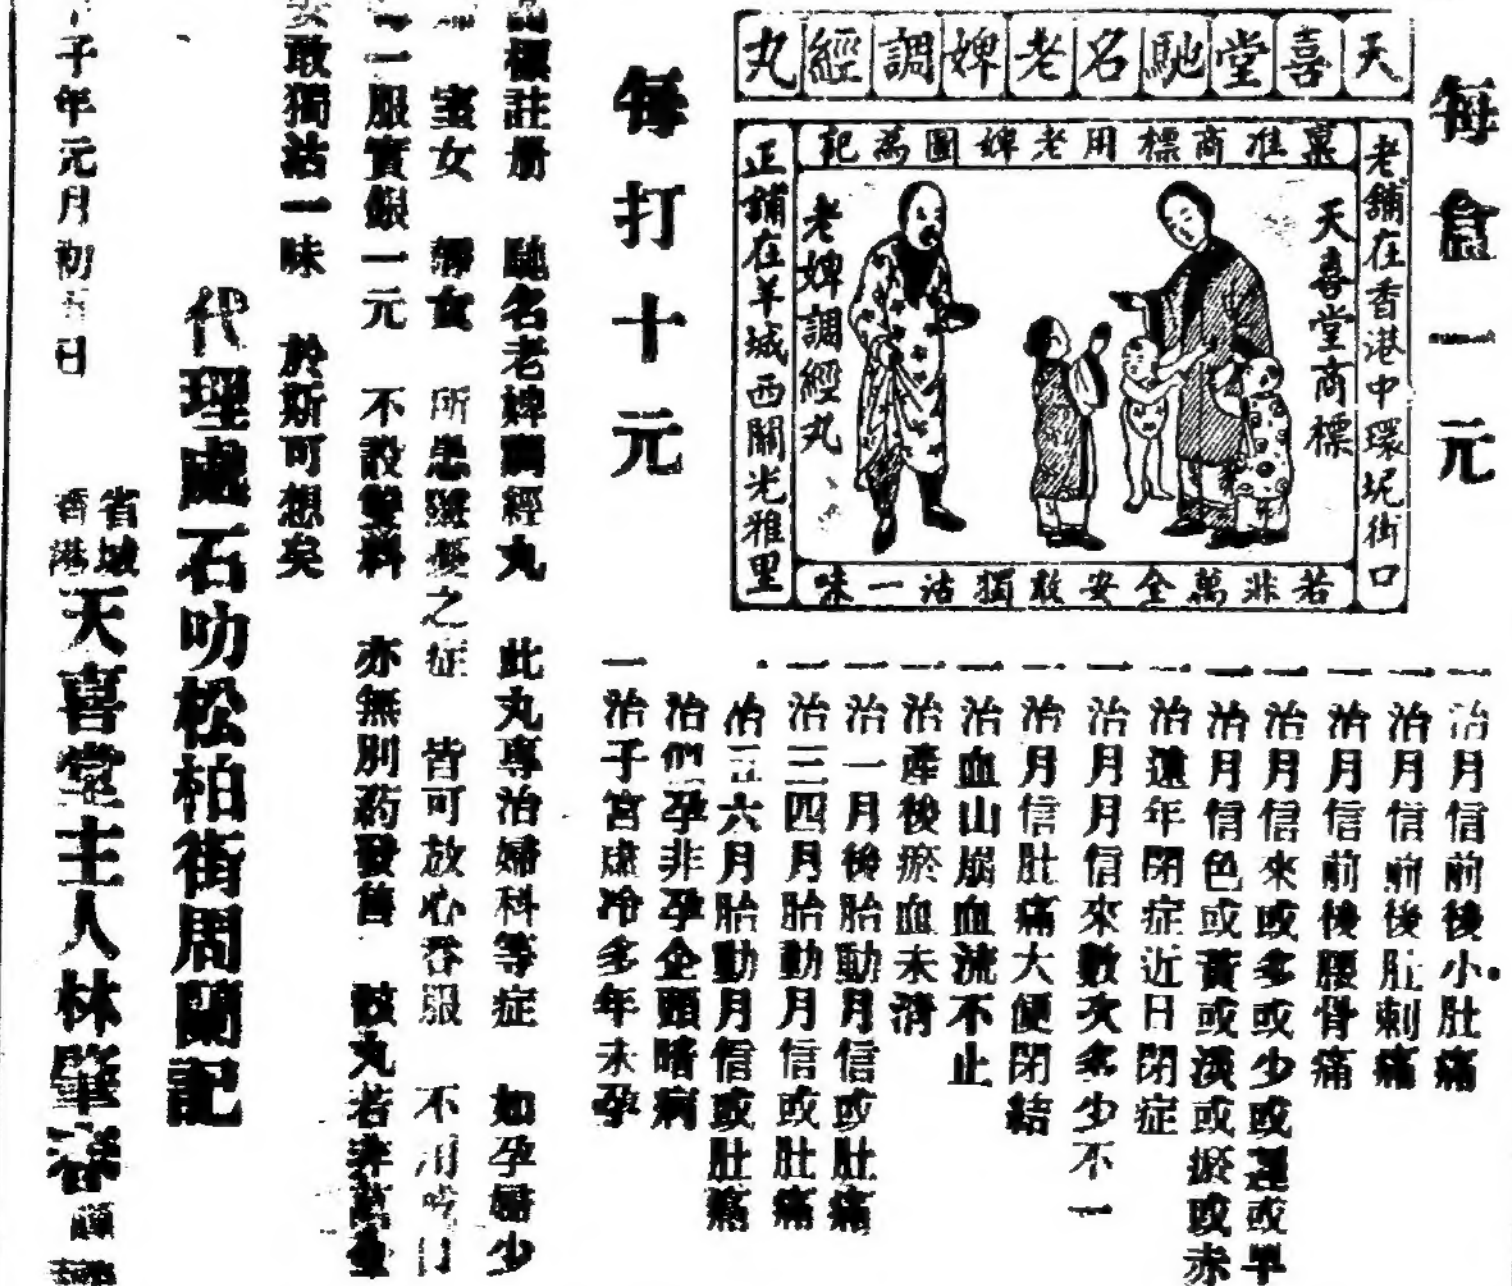 每盒一元
天喜堂馳名老婢調經丸
稟准商標用老婢圖為記
老舖在香港中環坭街口
天喜堂商標
老婢調經丸
正舖在羊城西關光雅里
若非萬全安敢獨沽一味
每打十元
一治月信前後小肚痛
一治月信前後肚刺痛
一治月信前後腰骨痛
一治月信來或多或少或遲或早
一治月信色或黃或淡或瘀或赤
一治遠年閉症近日閉症
一治月月信來數次多少不一
一治月信肚痛大便閉結
一治血山崩血流不止
一治產後瘀血未清
一治一月後胎動月信或肚痛
一治三四月胎動月信或肚痛
治五六月胎動月信或肚痛
治們孕非孕企頭暗病
一治子宮虛冷多年未孕
商標註册 馳名老婢調經丸 此丸專治婦科等症 如孕婦少
室女 所患 之症 皆可放心吞服 不用
一服實銀一元 不設雙料 亦無別药發售 該丸若非萬全
安敢獨沽一味 於斯可想矣
代理處石叻松柏街周蘭記
子年元月初五日
省城
香港
天喜堂主人林肇容